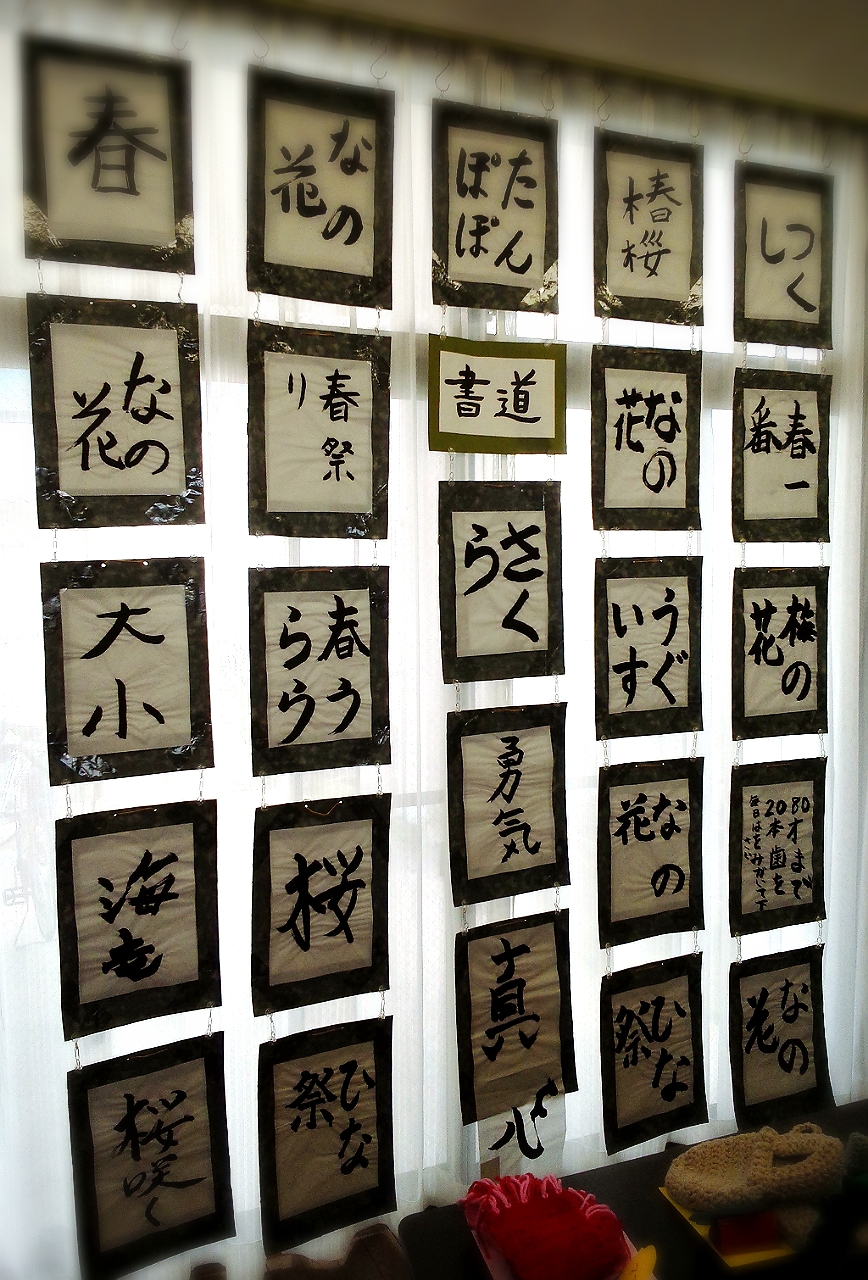 春
なの
花
たん
ぽぽ
椿桜
つく
し
なの
花
春祭
り
書道
なの
花
春一
番
大小
春う
らら
さく
ら
うぐ
いす
梅の
花
海竜
桜
勇気
なの
花
80才まで
20本歯を
毎日はをみがいて下
さい
桜咲く
ひな
祭
真心
ひな
祭
なの
花